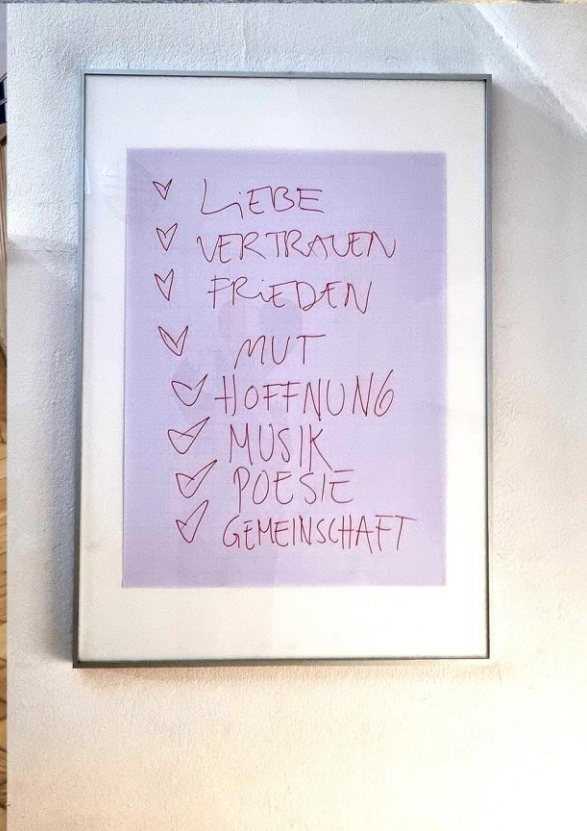 LiEBE
VERTRAUEN
FRiEDEN
MUT
HOFFNUNG
MUSIK
POESIE
GEMEINSCHAFT